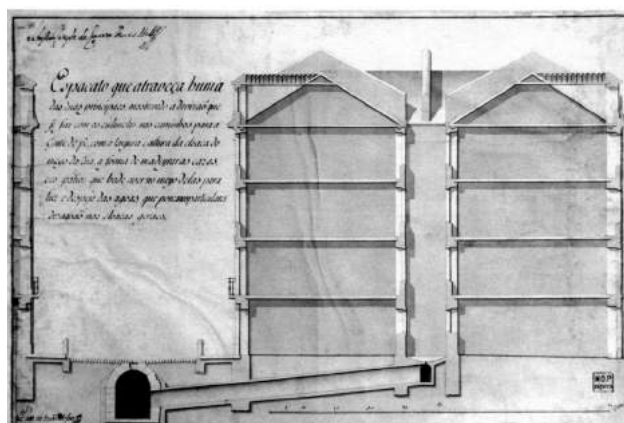 Espacato que atraveça huma
das ruas principaes mostrando a divizaõ que
se faz com os colunelos nos caminhos para a
Gente de pé, como a largura e altura da cloaca do
meyo da rua, a forma de madeyrar as cazas,
e o patio, que hade aver no meyo delas para
luz e despejo das agoas, que por cano particular
desagoaõ nas cloacas geraes.
M.O.P.